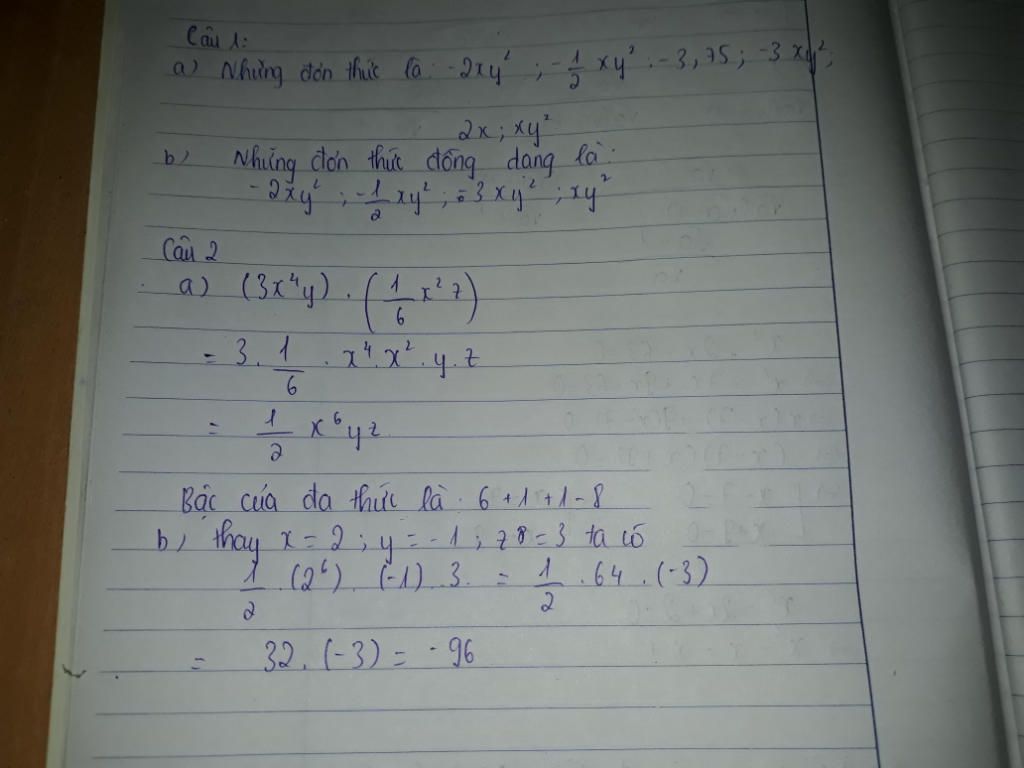 Câu 1:
a) Những đơn thức là: -2xy² ; -1/2 xy² ; -3,75 ; -3xy² ;
2x ; xy²
b) Những đơn thức đồng dạng là:
-2xy² ; -1/2 xy² ; -3xy² ; xy²
Câu 2
a) (3x⁴y) . (1/6 x²z)
= 3 . 1/6 . x⁴. x² . y . z
= 1/2 x⁶yz
Bậc của đa thức là : 6 + 1 + 1 = 8
b) thay x = 2 ; y = -1 ; z = 3 ta có
1/2 . (2⁶) . (-1) . 3 . = 1/2 . 64 . (-3)
= 32 . (-3) = -96